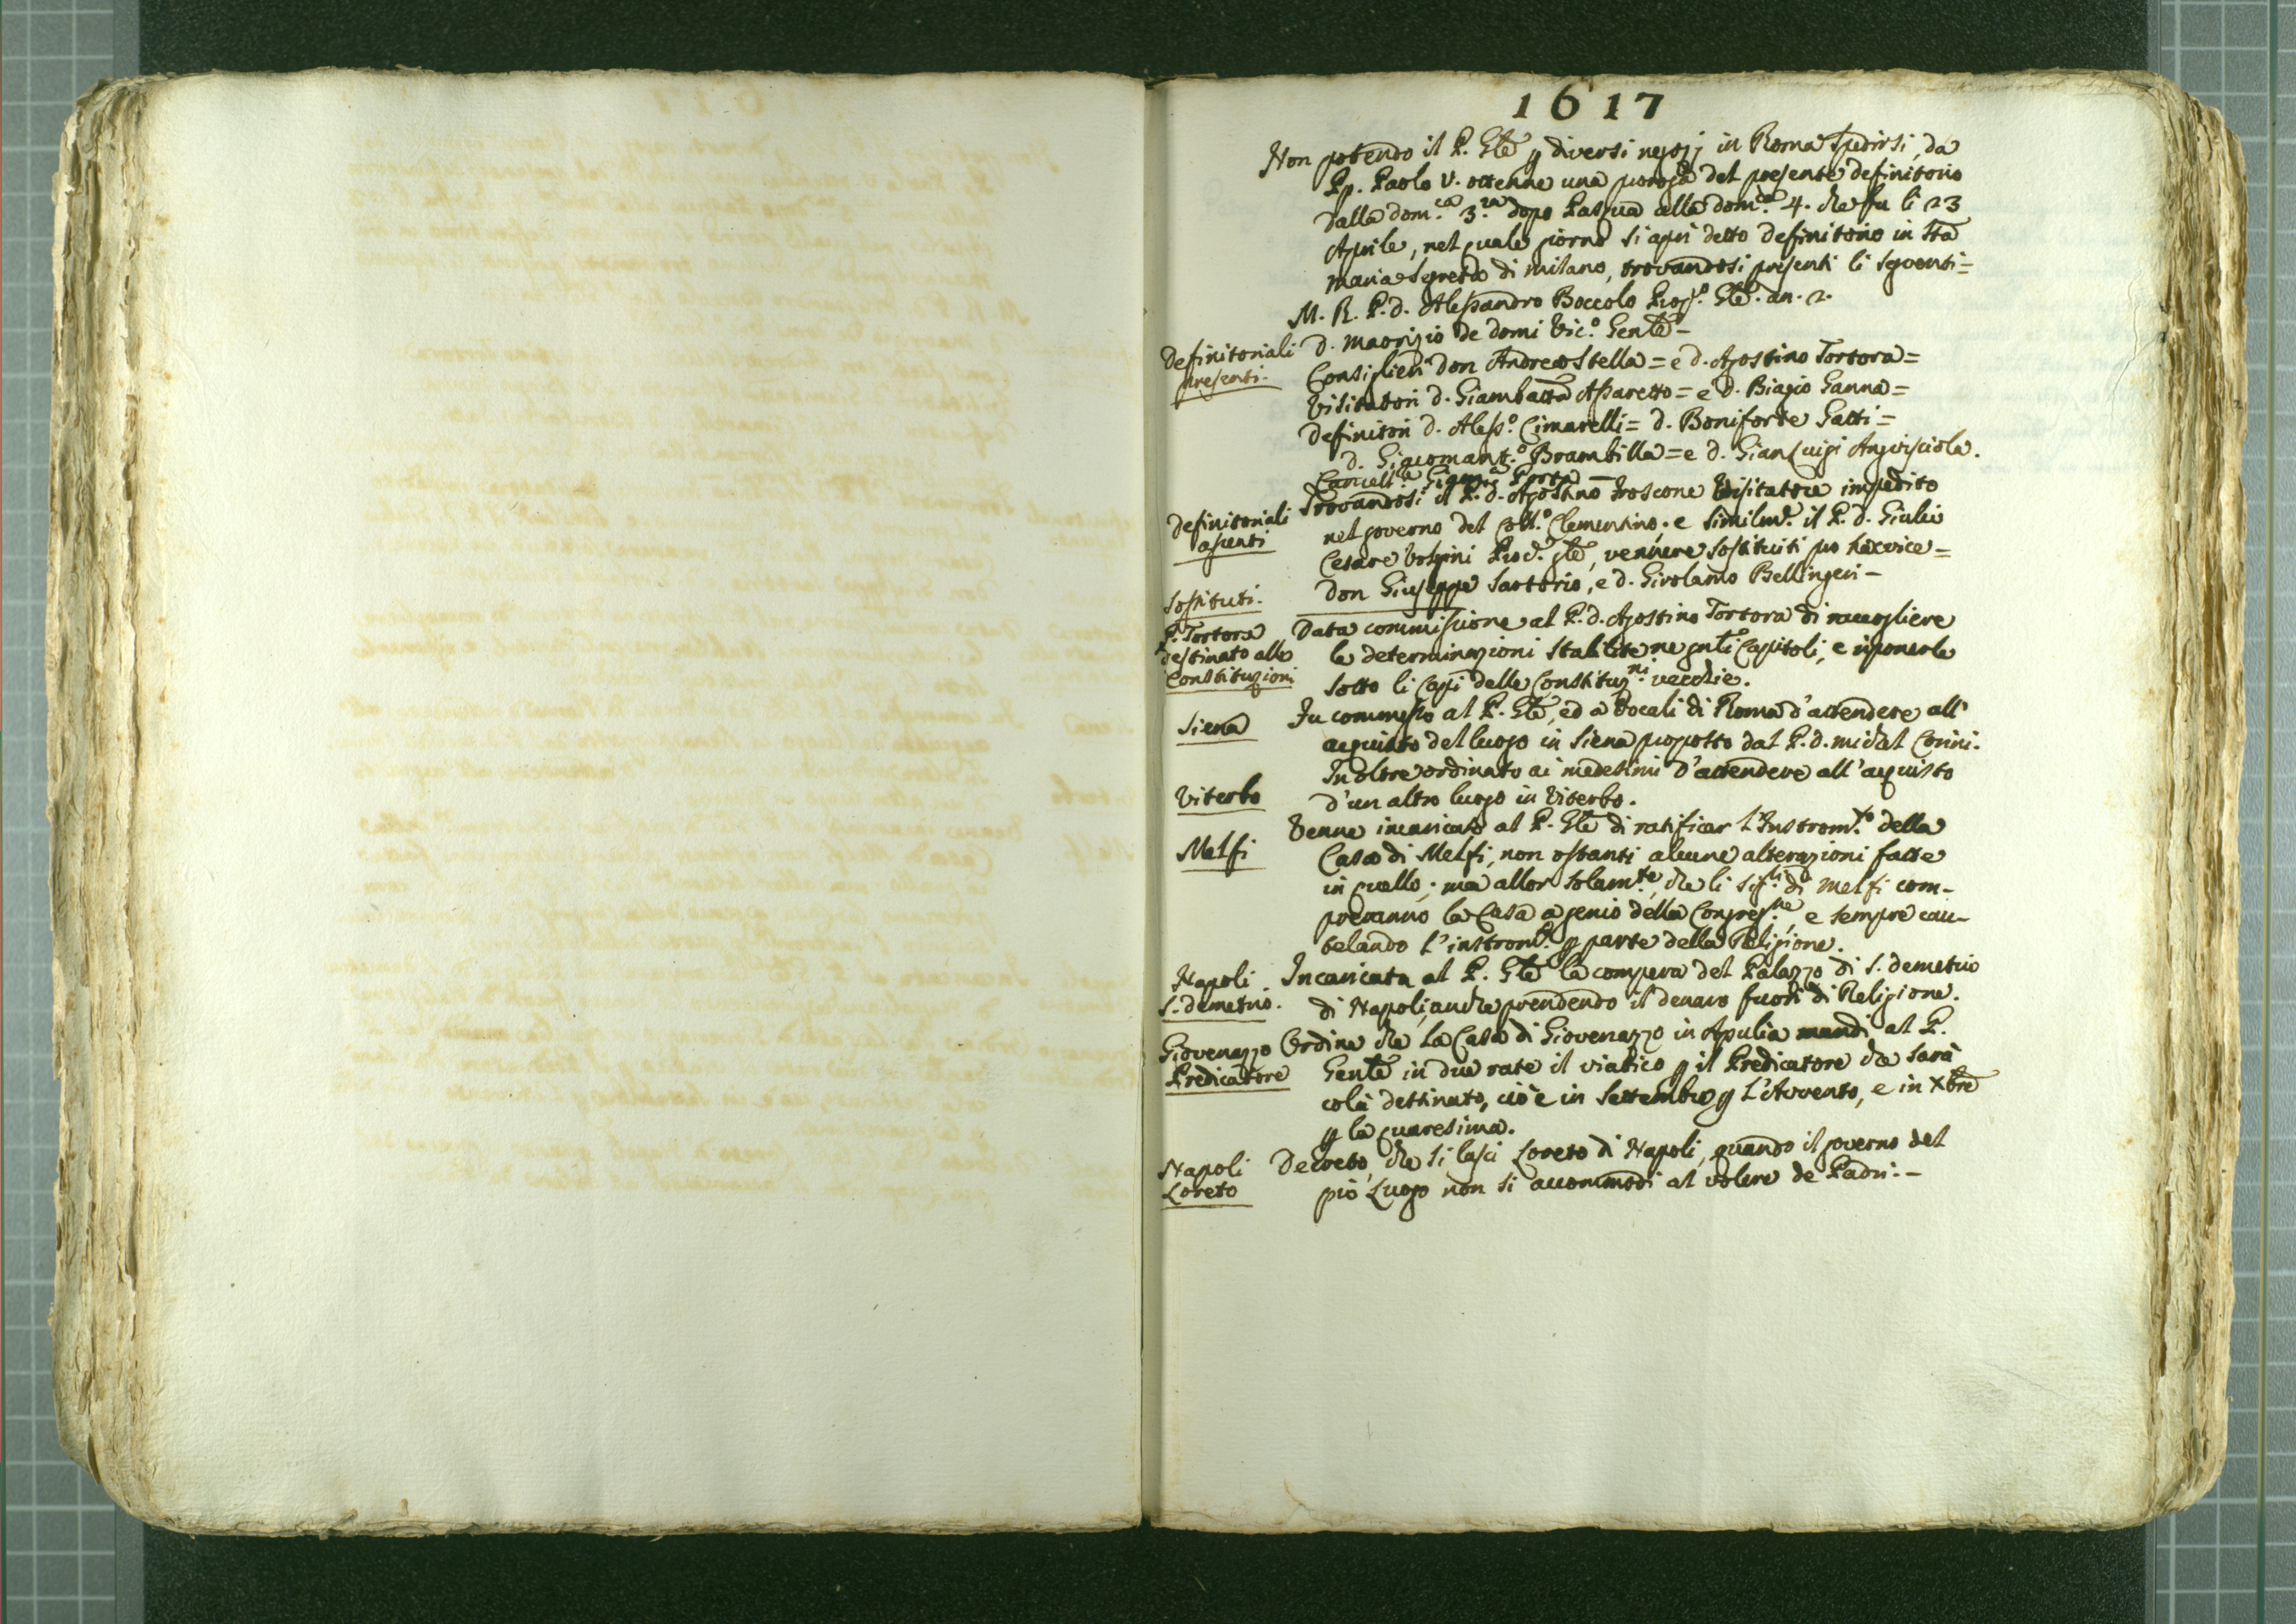 1617
Non potendo il P. Gle p diversi negozj in Roma spedirsi, da
Pp. Paolo V. ottenne una proroga del presente definitorio
dalla dom.ca 3.za dopo Pasqua alla dom.ca 4. che fu li 23
Aprile, nel quale giorno si aprì detto definitorio in Sta
Maria Segreta di Milano, trovandosi presenti li seguenti=
M. R. P. d. Alessandro Boccolo Prep.o Gle. an. 2.
Definitoriali
presenti.
d. Maorizio de Domi Vic.o Genle-
Consiglieri don Andrea Stella = e d. Agostino Tortora=
Visitatori d. Giambatta Assaretto = e d. Biagio Ganna=
Definitori d. Aless.o Cimarelli = d. Boniforte Gatti=
d. Giacomant.o Brambilla = e d. Gian Luigi Anguisciola.
Cancell.e Porta
Definitoriali
assenti
Trovandosi il P. d. Agostino Froscone Visitatore impedito
nel governo del Coll.o Clementino. e similm.e il P. d. Giulio
Cesare Volpini Proc. gle, vennere sostituiti pro hac vice=
Sostituti.
don Giuseppe Sartorio, e d. Girolamo Bellingeri-
P. Tortora
destinato alle
Constituzioni
Data commissione al P. d. Agostino Tortora di raccogliere
le determinazioni stabilite ne gnli Capitoli, e riponerle
sotto li Capi delle Constituz.ni vecchie.
Siena
Fu commesso al P. Gle, ed a Vocali di Roma d'attendere all'
acquisto del luogo in Siena proposto dal P. d. Michel Conini.
Inoltre ordinato ai medesimi d'attendere all'acquisto
Viterbo
d'un altro luogo in Viterbo.
Melfi
Venne incaricato al P. Gle di ratificar l'Instrom.to della
Casa di Melfi, non ostanti alcune alterazioni fatte
in quello; ma allor solam.te, che li Sig.ri di Melfi com-
preranno la Casa a genio della Congreg.ne, e sempre cau-
telando l'instrom.to p parte della Religione.
Napoli
S. Demetrio.
Incaricata al P. Gle la compera del Palazzo di S. Demetrio
di Napoli, anche prendendo il denaro fuori di Religione.
Giovenazzo
Predicatore
Ordine che la Casa di Giovenazzo in Apulia mandi al P.
Genle in due rate il viatico p il Predicatore che sarà
colà destinato, cioè in Settembre p l'Avvento, e in Xbre
p la quaresima.
Napoli
Loreto
Decreto, che si lasci Loreto di Napoli, quando il governo del
pio Luogo non si accommodi al volere de Padri.-